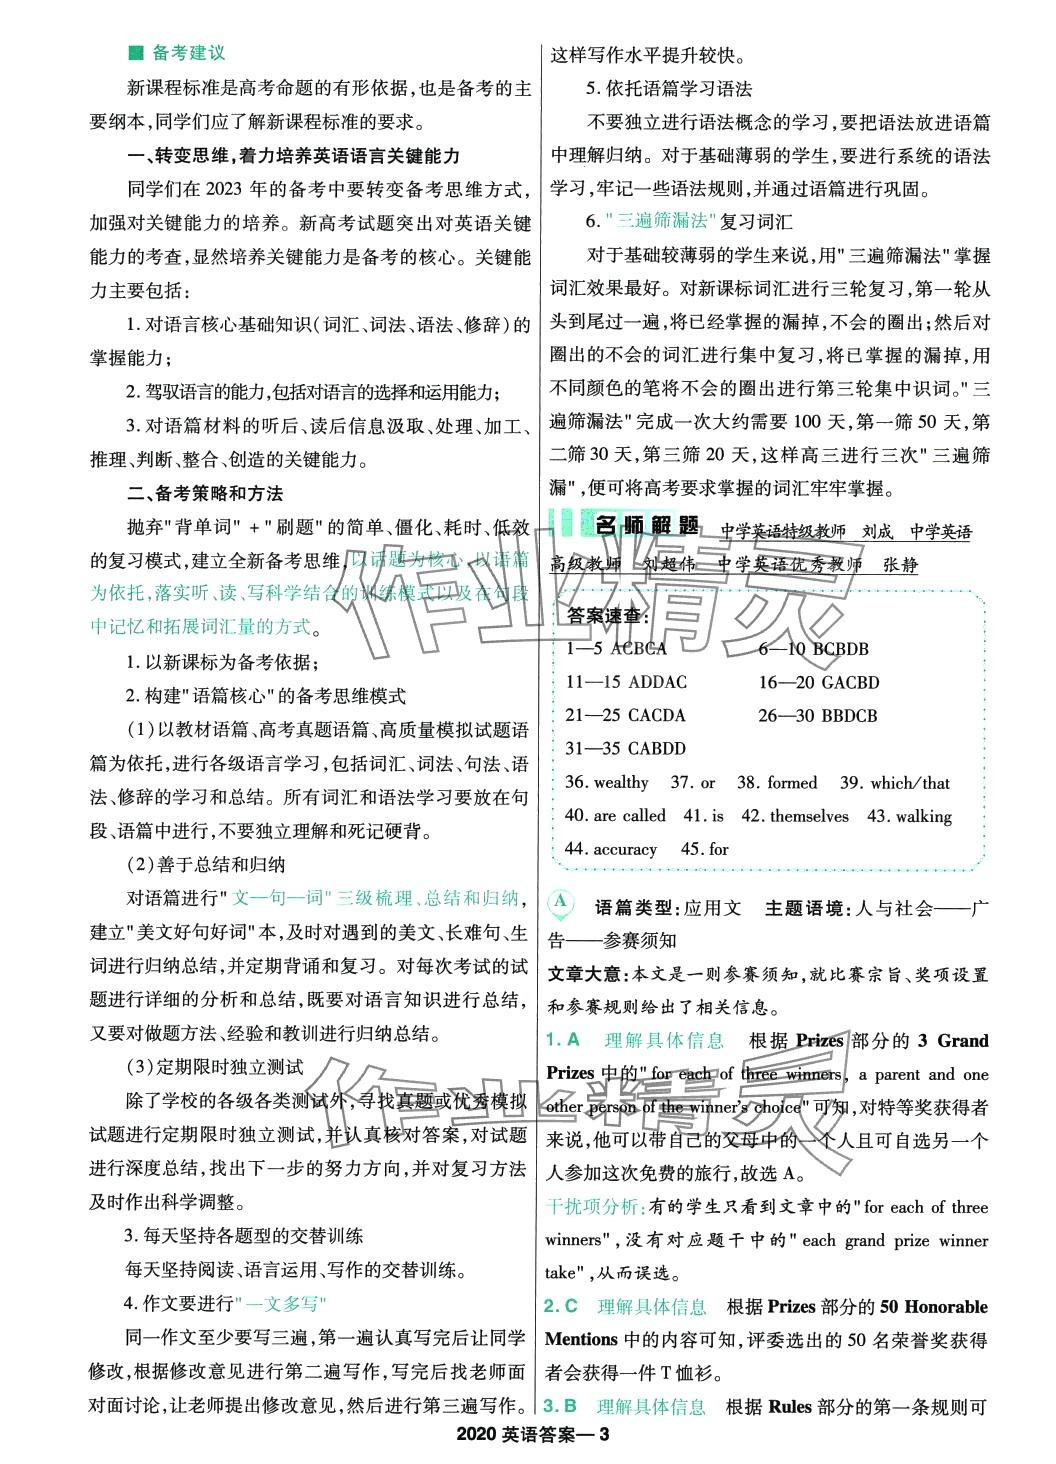 ■ 备考建议
新课程标准是高考命题的有形依据,也是备考的主
要纲本,同学们应了解新课程标准的要求。
一、转变思维,着力培养英语语言关键能力
同学们在 2023 年的备考中要转变备考思维方式,
加强对关键能力的培养。新高考试题突出对英语关键
能力的考查,显然培养关键能力是备考的核心。关键能
力主要包括:
1. 对语言核心基础知识(词汇、词法、语法、修辞)的
掌握能力;
2. 驾驭语言的能力,包括对语言的选择和运用能力;
3. 对语篇材料的听后、读后信息汲取、处理、加工、
推理、判断、整合、创造的关键能力。
二、备考策略和方法
抛弃"背单词" + "刷题"的简单、僵化、耗时、低效
的复习模式,建立全新备考思维,以话题为核心,以语篇
为依托,落实听、读、写科学结合的训练模式以及在句段
中记忆和拓展词汇量的方式。
1. 以新课标为备考依据;
2. 构建"语篇核心"的备考思维模式
(1)以教材语篇、高考真题语篇、高质量模拟试题语
篇为依托,进行各级语言学习,包括词汇、词法、句法、语
法、修辞的学习和总结。所有词汇和语法学习要放在句
段、语篇中进行,不要独立理解和死记硬背。
(2)善于总结和归纳
对语篇进行"文—句—词"三级梳理、总结和归纳,
建立"美文好句好词"本,及时对遇到的美文、长难句、生
词进行归纳总结,并定期背诵和复习。对每次考试的试
题进行详细的分析和总结,既要对语言知识进行总结,
又要对做题方法、经验和教训进行归纳总结。
(3)定期限时独立测试
除了学校的各级各类测试外,寻找真题或优秀模拟
试题进行定期限时独立测试,并认真核对答案,对试题
进行深度总结,找出下一步的努力方向,并对复习方法
及时作出科学调整。
3. 每天坚持各题型的交替训练
每天坚持阅读、语言运用、写作的交替训练。
4. 作文要进行"一文多写"
同一作文至少要写三遍,第一遍认真写完后让同学
修改,根据修改意见进行第二遍写作,写完后找老师面
对面讨论,让老师提出修改意见,然后进行第三遍写作。
这样写作水平提升较快。
5. 依托语篇学习语法
不要独立进行语法概念的学习,要把语法放进语篇
中理解归纳。对于基础薄弱的学生,要进行系统的语法
学习,牢记一些语法规则,并通过语篇进行巩固。
6. "三遍筛漏法"复习词汇
对于基础较薄弱的学生来说,用"三遍筛漏法"掌握
词汇效果最好。对新课标词汇进行三轮复习,第一轮从
头到尾过一遍,将已经掌握的漏掉,不会的圈出;然后对
圈出的不会的词汇进行集中复习,将已掌握的漏掉,用
不同颜色的笔将不会的圈出进行第三轮集中识词。"三
遍筛漏法"完成一次大约需要 100 天,第一筛 50 天,第
二筛 30 天,第三筛 20 天,这样高三进行三次"三遍筛
漏",便可将高考要求掌握的词汇牢牢掌握。
名师解题 中学英语特级教师 刘成 中学英语
高级教师 刘超伟 中学英语优秀教师 张静
答案速查:
1—5 ACBCA 6—10 BCBDB
11—15 ADDAC 16—20 GACBD
21—25 CACDA 26—30 BBDCB
31—35 CABDD
36. wealthy 37. or 38. formed 39. which/that
40. are called 41. is 42. themselves 43. walking
44. accuracy 45. for
A 语篇类型:应用文 主题语境:人与社会——广
告——参赛须知
文章大意:本文是一则参赛须知,就比赛宗旨、奖项设置
和参赛规则给出了相关信息。
1. A 理解具体信息 根据 Prizes 部分的 3 Grand
Prizes 中的"for each of three winners, a parent and one
other person of the winner's choice"可知,对特等奖获得者
来说,他可以带自己的父母中的一个人且可自选另一个
人参加这次免费的旅行,故选 A。
干扰项分析:有的学生只看到文章中的"for each of three
winners",没有对应题干中的"each grand prize winner
take",从而误选。
2. C 理解具体信息 根据 Prizes 部分的 50 Honorable
Mentions 中的内容可知,评委选出的 50 名荣誉奖获得
者会获得一件 T 恤衫。
3. B 理解具体信息 根据 Rules 部分的第一条规则可
2020 英语答案—3
作业精灵
作业精灵